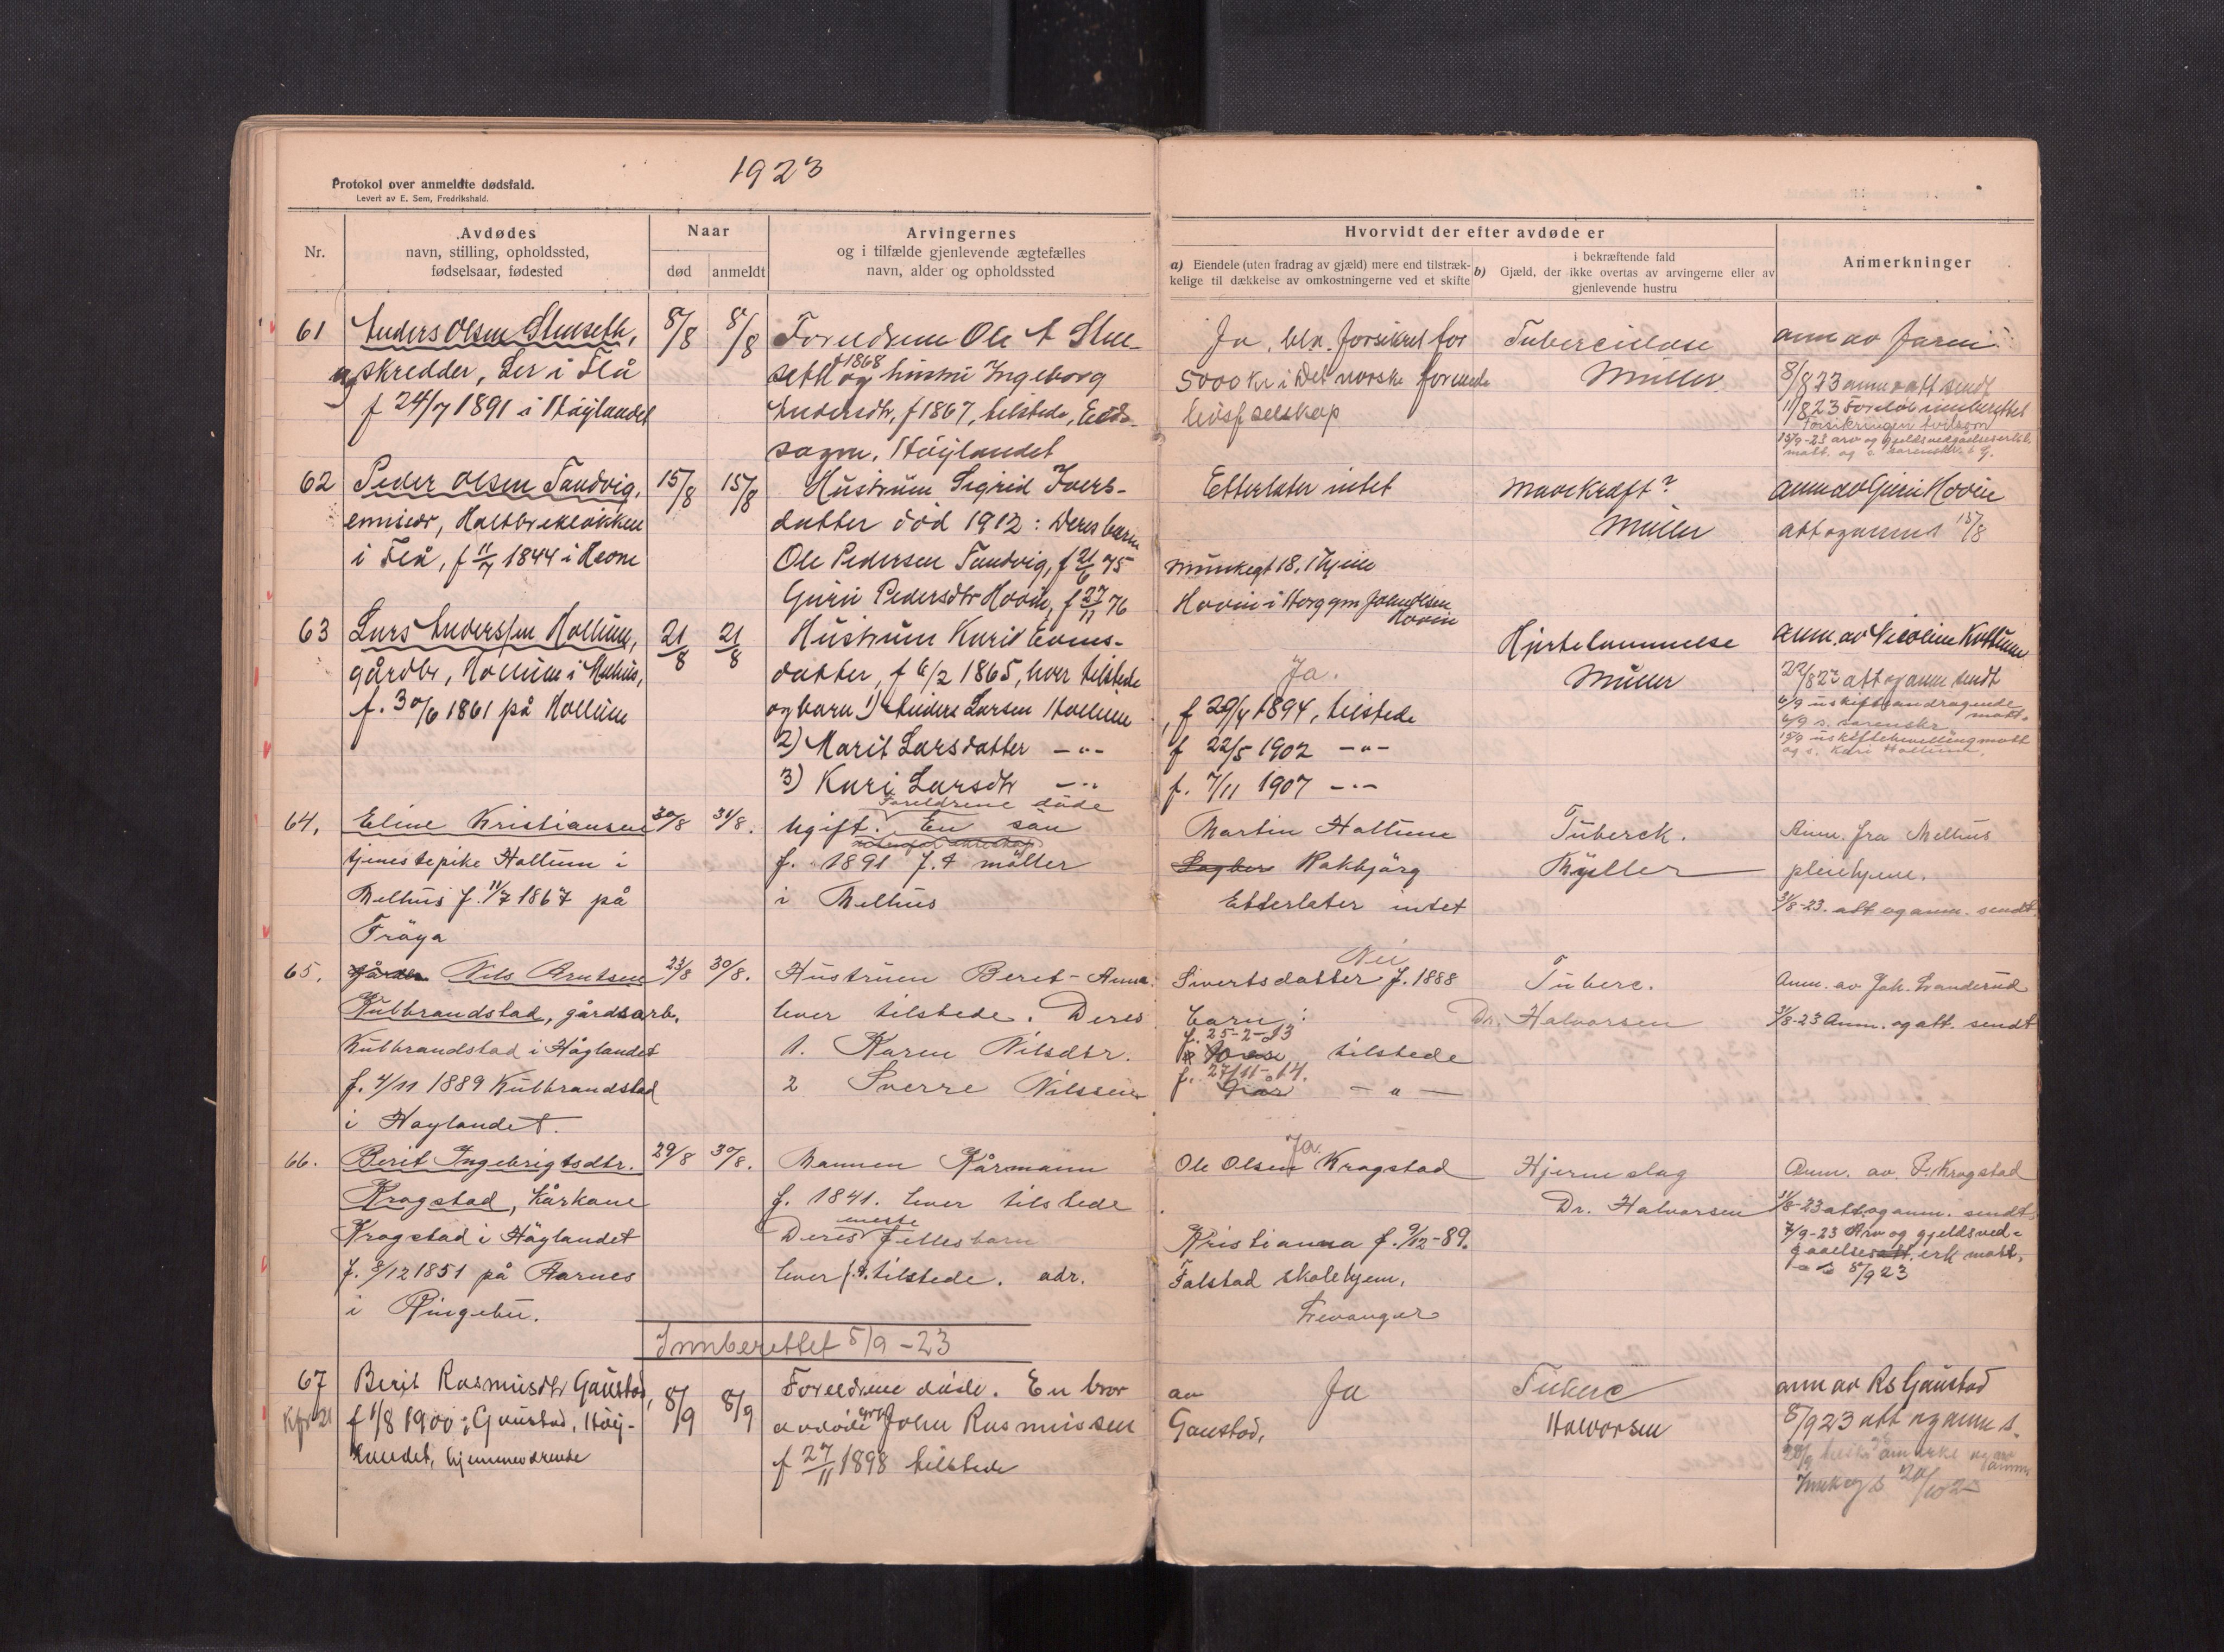 1923
Protokol over anmeldte dødsfald.
Levert av E. Sem, Fredrikshald.
Nr.
Avdødes
navn, stilling, opholdssted,
fødselsaar, fødested
Naar
død
anmeldt
Arvingernes
og i tilfælde gjenlevende ægtefælles
navn, alder og opholdssted
Hvorvidt der efter avdøde er
a) Eiendele (uten fradrag av gjæld) mere end tilstræk-
kelige til dækkelse av omkostningerne ved et skifte
i bekræftende fald
b) Gjæld, der ikke overtas av arvingerne eller av
gjenlevende hustru
Anmerkninger
61
Anders Olsen
skredder, Ler i Flå
f 24/7 1891 i Höylandet
8/8
8/8
Foreldrene Ole A
seth f 1868 og hustru Ingeborg
Andersdtr, f 1867, tilstede, Eids-
sogn, Höylandet
Ja, bl.a. forsikret for
5000 kr i Det norske forenede
livsf selskap
Tuberculose
Müller
anm av faren
8/8 23 anm og att sendt
11/8 23
Forsikringen
15/9-23 arv og gjeldsvedgåelseserkl.
mott. og s. sorenskr.
62
Peder Olsen Tandvig,
i Flå, f 11/4 1844 i
15/8
15/8
Hustruen Sigrid Ivers-
datter död 1912: Deres barn
Ole Pedersen Tandvig, f 21/6 75
Guru Pedersdtr Hovin, f 27/11 76
Etterlater intet
Munkegt 18, Thjem
Hovin i Horg gm John Olsen
Hovin
Mavekræft?
Müller
anm av Guru Hovin
att og anm s 15/8
63
Lars Anderssen Hollum,
gårdbr, Hollum i Melhus,
f. 30/6 1861 på Hollum
21/8
21/8
Hustruen Kari Evens-
datter, f 6/2 1865, lever tilstede
og barn 1) Anders Larsen Hollum
2) Marit Larsdatter -"-
3) Kari Larsdtr -"-
Ja.
, f 29/4 1894, tilstede
f 22/5 1902 -"-
f. 7/11 1907 -"-
Hjertelammelse
Müller
anm. av Nicoline Hollum
22/8 23 att og anm sendt
6/9 uskifteandragende
mott.
6/9 s. sorenskr
15/9 uskiftebevilling mott
og s. Kari Hollum.
64.
Eline Kristiansen
tjenestepike Hollum i
Melhus f. 11/7 1867 på
Fröya
30/8
31/8.
Foreldrene döde
Ugift. En sön
f. 1891 f.t möller
i Melhus
Martin Hallum
Rakbjörg
Etterlater intet
Tuberck.
Myller
Anm. fra Melhus
pleiehjem.
31/8-23. att og anm. sendt.
65.
Nils Arntsen
Kulbrandstad, gårdsarb.
Kulbrandstad i Höylandet
f. 4/11 1889 Kulbrandstad
i Haylandet.
23/8
30/8.
Hustruen Beret-Anna
lever tilstede. Deres
1. Karen Nilsdtr.
2 Sverre Nilssen
Nei
Sivertsdatter f. 1888
barn:
f. 25-2-13
tilstede
f. 27/11-14.
- " -
Tuberc.
Dr. Halvorsen
Anm. av Joh. Landerud
31/8-23 Anm. og att. sendt
66.
Berit Ingebrigtsdtr.
Krogstad, kårkone
Krogstad i Höylandet
f. 8/12 1851 på Aarnes
i Ringebu.
29/8
30/8.
Mannen Kårmann
f. 1841. lever tilstede
eneste
Deres fellesbarn
lever f.t. tilstede. adr.
Ja.
Ole Olsen Krogstad
Kristianna f. 9/12-89.
Falstad skolehjem,
Levanger
Hjerneslag
Dr. Halvorsen
Anm. av. P. Krogstad
31/8-23 att. og anm. sendt
7/9-23 Arv og gjeldsved-
gaaelses erk mott.
8/9 23
Innberettet 5/9-23
67
Berit Rasmusdtr Gaustad,
f 1/8 1900 i Gaustad, Höy-
landet, hjemmeværende
8/9
8/9
Foreldrene döde. En bror
avdöde grbr John Rasmussen
f 27/11 1898 tilstede
av
Gaustad,
Ja
Tuberc
Halvorsen
anm av Rs Gaustad
8/9 23 att og anm s.